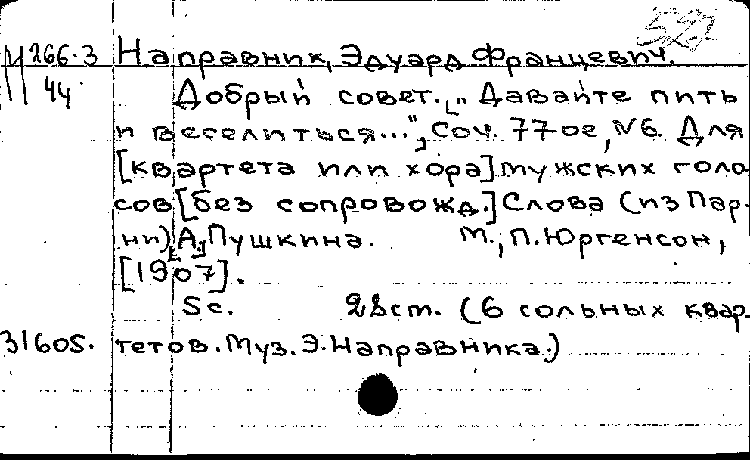 527
Ц266.3 Направник, Эдуард Францевич.
44 Добрый совет. ["Давайте пить
и веселиться..."], Соч. 77ое, №6. Для
[квартета или хора] мужских голо
сов [без сопровожд.] Слова (из Пар-
ни) А[.] Пушкина. М., П. Юргенсон,
[1907].
Sc. 2 &ст. (6 сольных квар-
31605. тетов. Муз. Э. Направника.)